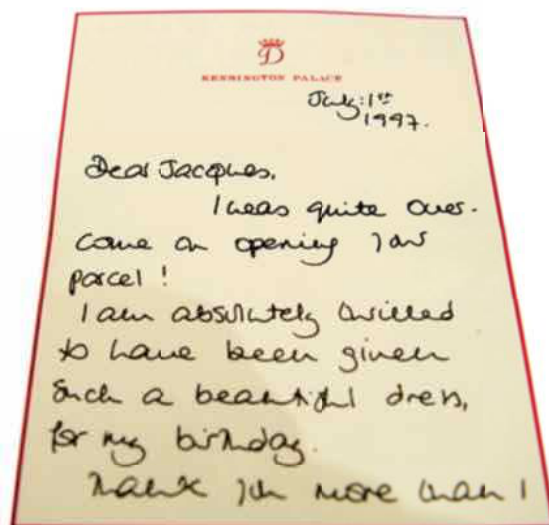 D
KENSINGTON PALACE
July: 1st
1997.
Dear Jacques,
I was quite over-
come on opening your
parcel!
I am absolutely thrilled
to have been given
such a beautiful dress,
for my birthday.
Thank you more than I